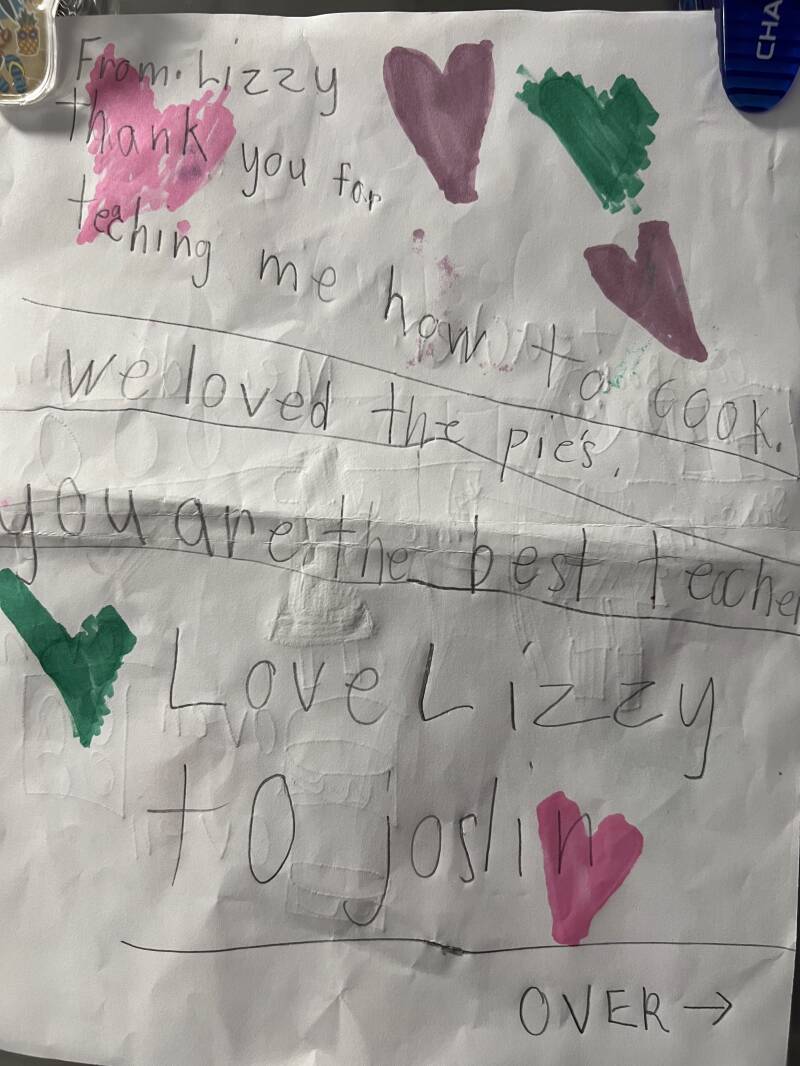 From. Lizzy
thank you for
teaching me how to cook.
we loved the pie's.
you are the best teacher
Love Lizzy
to joslin
OVER →
CHA